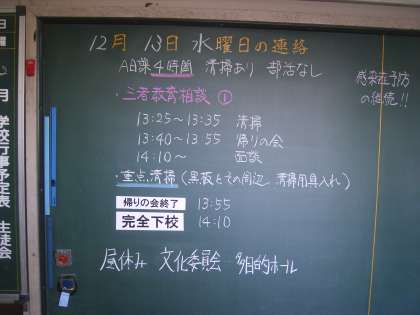 12月 13日 水曜日の連絡
A日課 4時間 清掃あり 部活なし
感染症予防
の継続!!
・三者教育相談 ①
13:25～13:35 清掃
13:40～13:55 帰りの会
14:10～ 面談
・重点清掃(黒板とその周辺 清掃用具入れ)
帰りの会終了 13:55
完全下校 14:10
昼休み 文化委員会 多目的ホール
月 学校行事予定表 生徒会